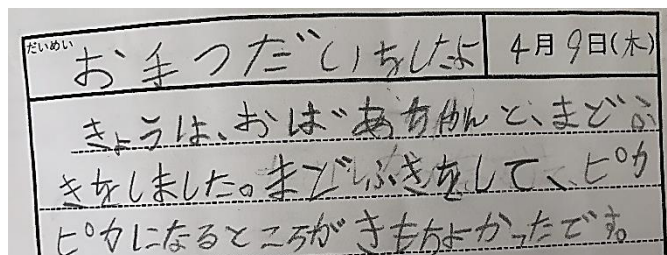 だいめい
お手つだいをしたよ
4月9日(木)
きょうは、おばあちゃんと、まどふ
きをしました。まどふきをして、ピカ
ピカになるところがきもちよかったです。